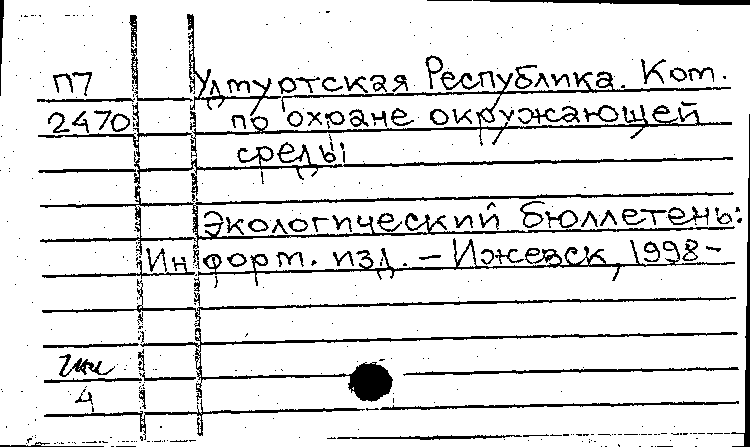 П7 Удмуртская Республика. Ком.
2470 по охране окружающей
среды
Экологический бюллетень:
Информ. изд. – Ижевск, 1998–
4